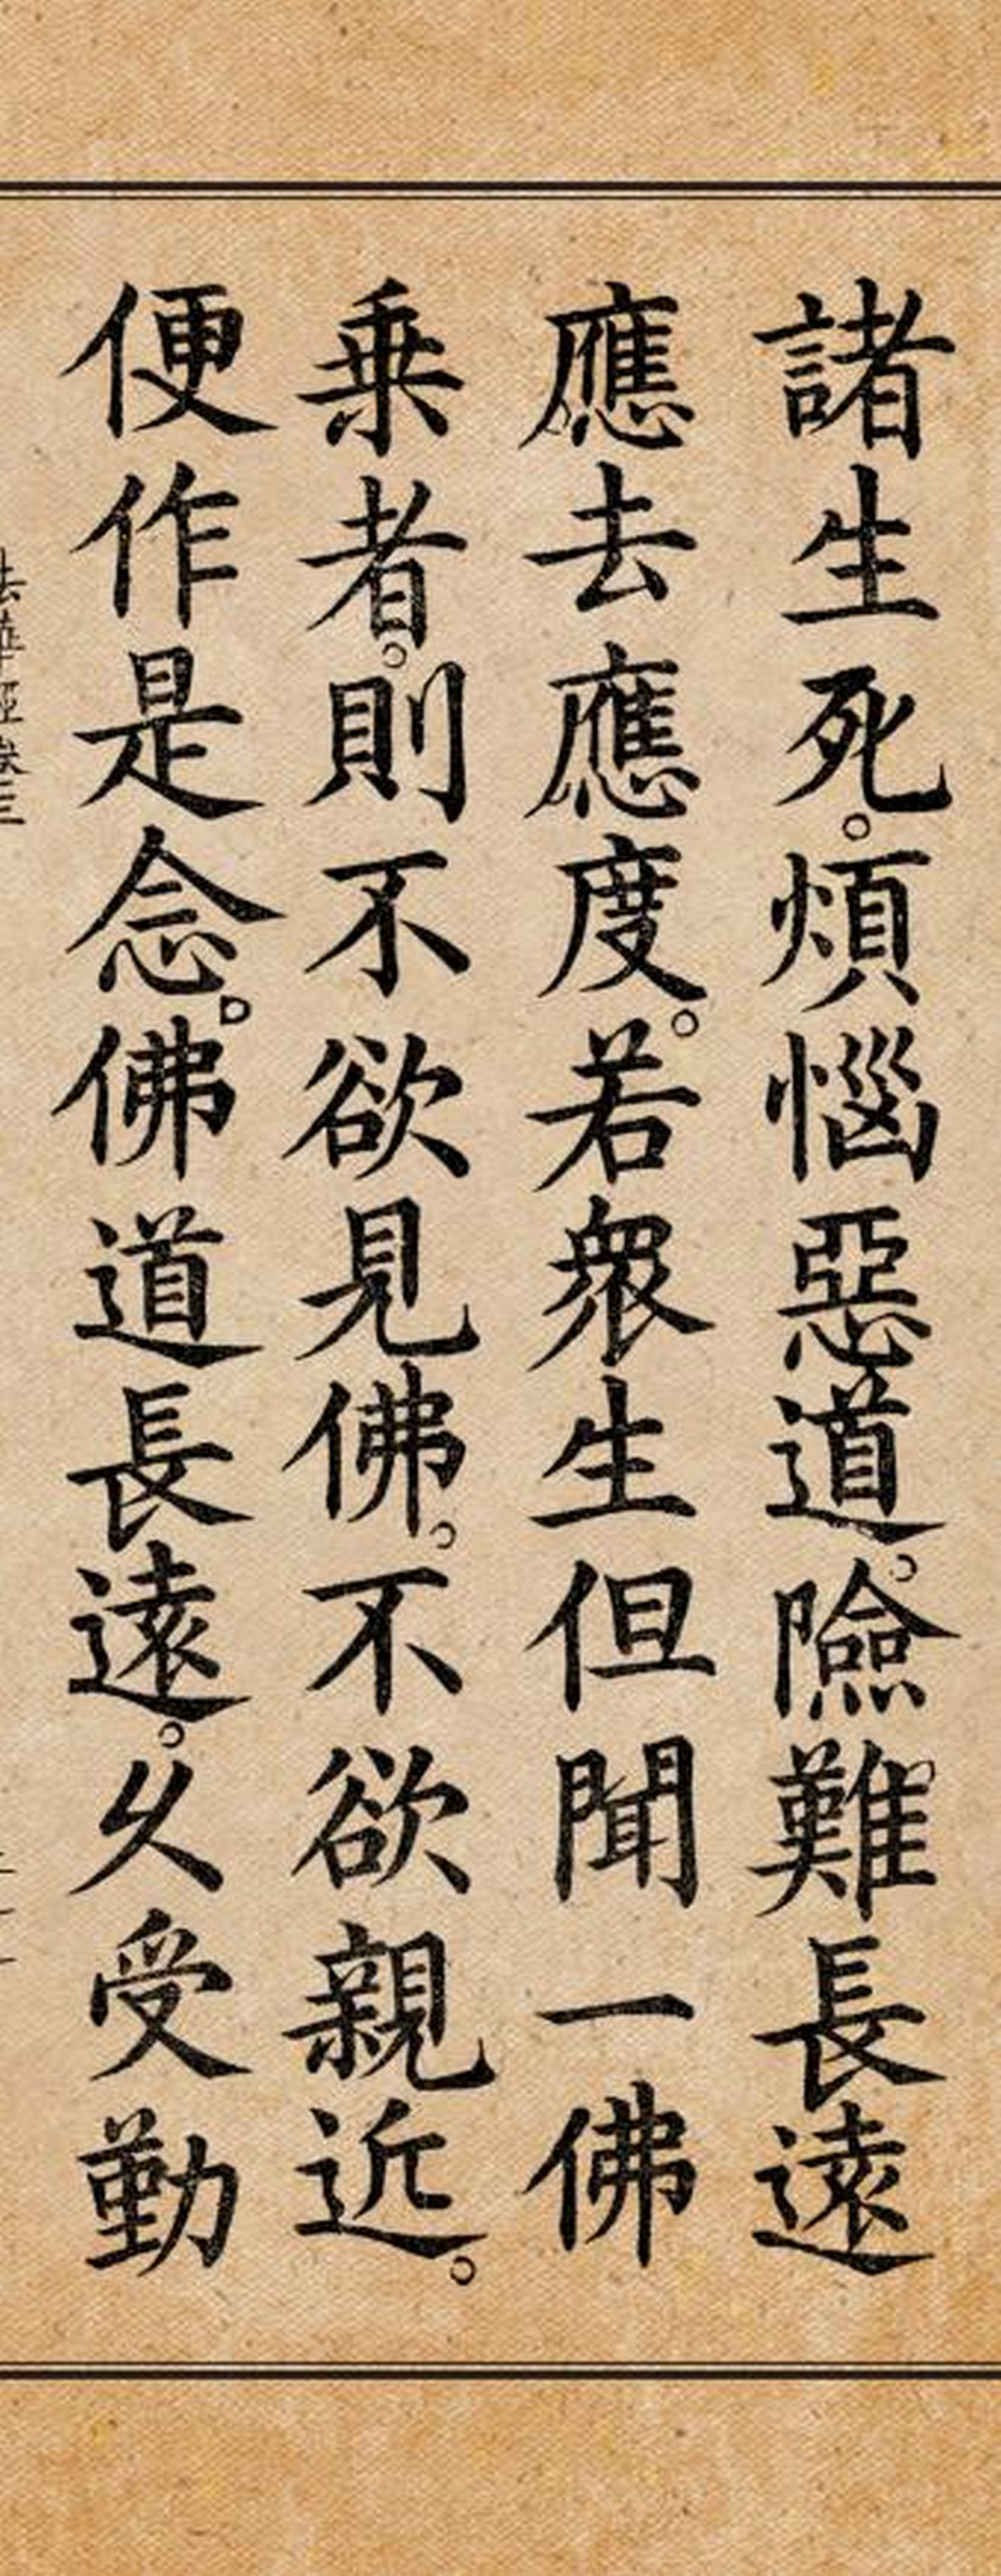 諸生死。煩惱惡道。險難長遠
應去應度。若衆生但聞一佛
乗者。則不欲見佛。不欲親近。
便作是念。佛道長遠。久受勤
法華經卷三